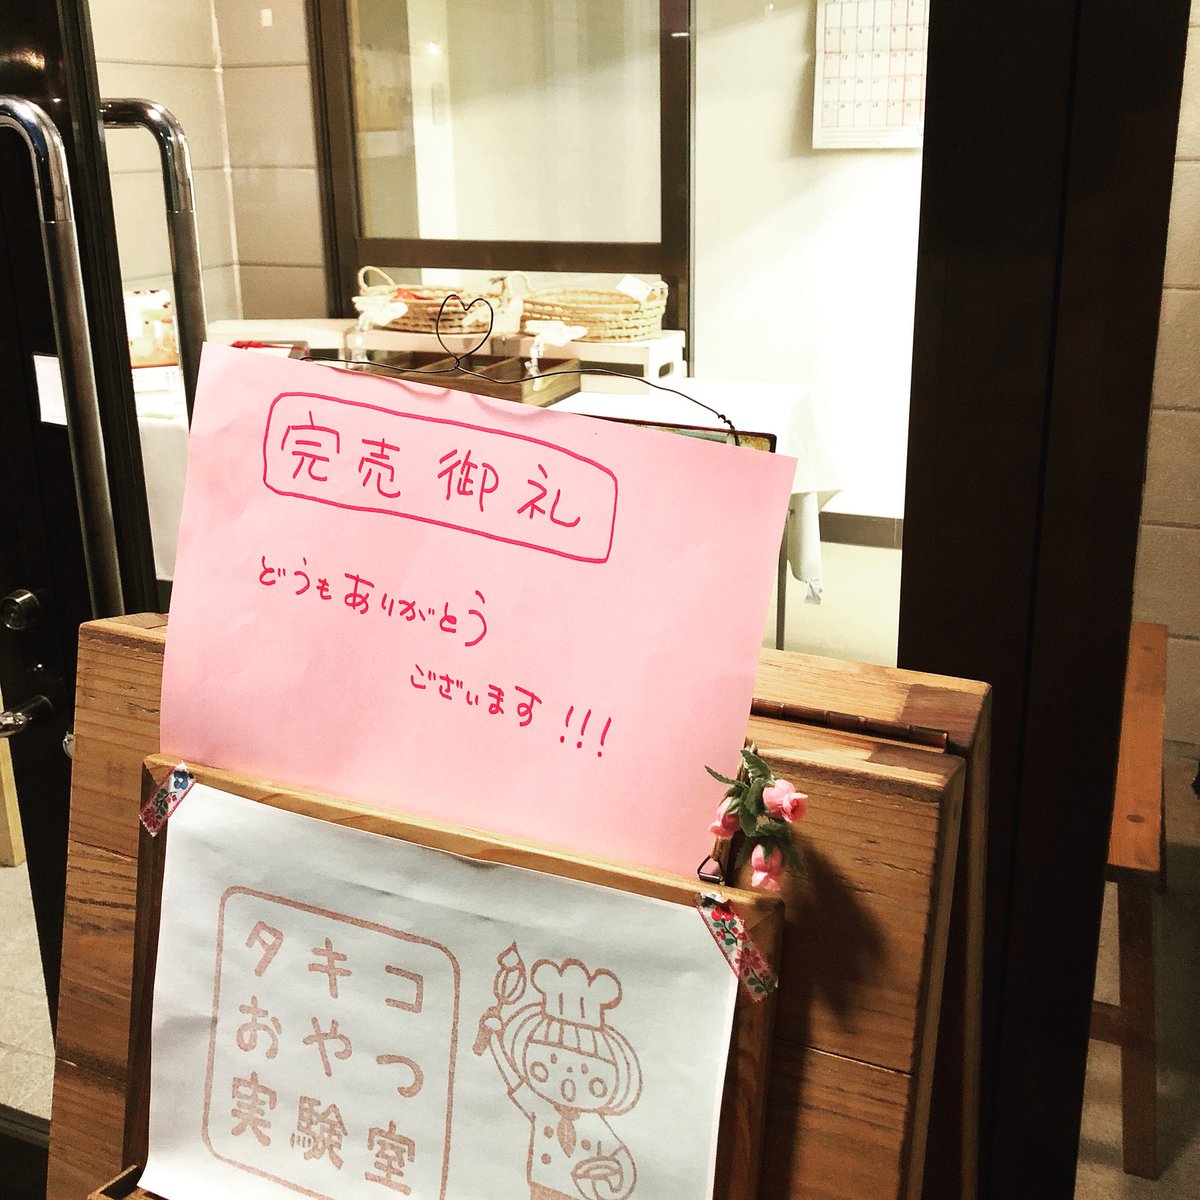 完売御礼
どうもありがとう
ございます!!!
タキコ
おやつ
実験室